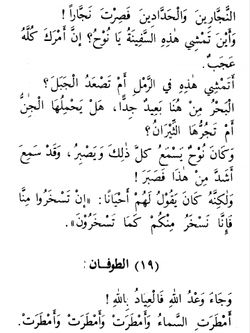 النَّجَّارِينَ وَالْحَدَّادِينَ فَصِرْتَ نَجَّاراً !
وَأَيْنَ تَمْشِي هٰذِهِ السَّفِينَةُ يَا نُوْحُ؟ إِنَّ أَمْرَكَ كُلَّهُ
عَجَبٌ.
أَتَمْشِي هٰذِهِ فِي الرَّمْلِ أَمْ تَصْعَدُ الْجَبَلَ؟
الْبَحْرُ مِنْ هُنَا بَعِيدٌ جِدًّا، هَلْ يَحْمِلُهَا الْجِنُّ
أَمْ تَجُرُّهَا الثِّيْرَانُ؟
وَكَانَ نُوْحٌ يَسْمَعُ كلَّ ذلِكَ وَيَصْبِرُ، وَقَدْ سَمِعَ
أَشَدَّ مِنْ هٰذَا فَصَبَرَ !
وَلٰكِنَّهُ كَانَ يَقُوْلُ لَهُمْ أَحْيَانًا: «إِنْ تَسْخَرُوا مِنَّا
فَإِنَّا نَسْخَرُ مِنْكُمْ كَمَا تَسْخَرُوْنَ».
(١٩) الطوفـان :
وَجَاءَ وَعْدُ اللهِ فَالْعِيَاذُ بِاللهِ!
أَمْطَرَتِ السَّمَاءُ وَأَمْطَرَتْ وَأَمْطَرَتْ وَأَمْطَرَتْ.